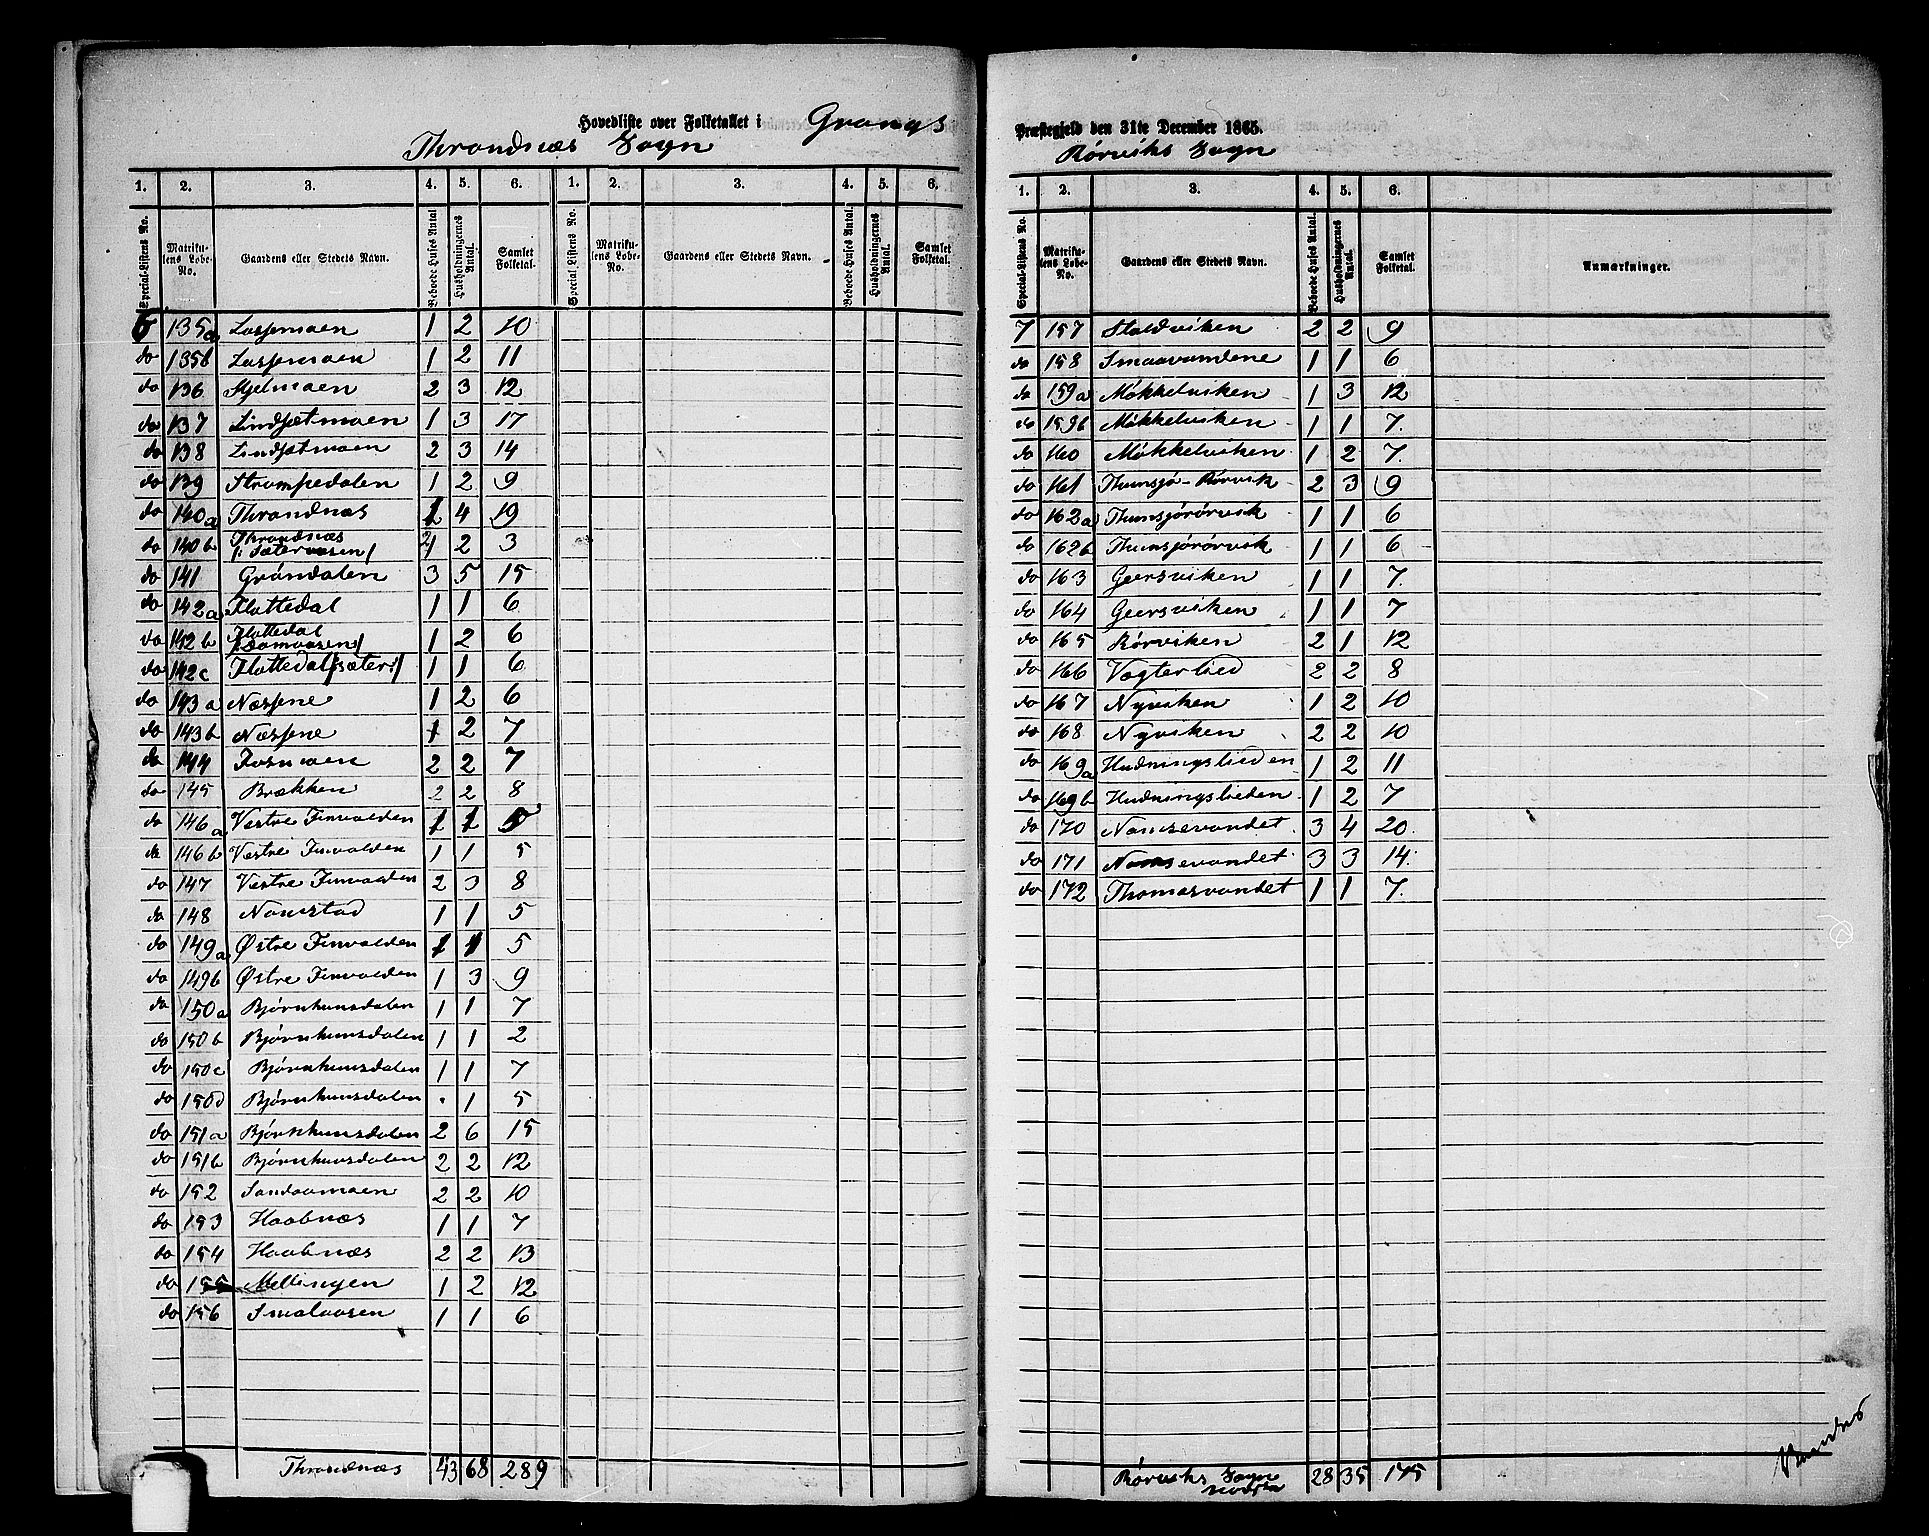 Hovedliste over Folketallet i Grongs
Throndnæs Sogn
1. 2. 3. 4. 5. 6. 1. 2. 3. 4. 5. 6.
Special-Listens No. Matrikulens Løbe-No. Gaardens eller Stedets Navn. Beboede Huses Antal Husholdningernes Antal. Samlet Folketal. Special-Listens No. Matrikulens Løbe-No. Gaardens eller Stedets Navn. Beboede Huses Antal. Husholdningernes Antal. Samlet Folketal.
6 135a Lassemoen 1 2 10
do 135b Lassemoen 1 2 11
do 136 Skjelmoen 2 3 12
do 137 Lindsetmoen 1 3 17
do 138 Lindsetmoen 2 3 14
do 139 Strompedalen 1 2 9
do 140a Throndnæs 1 4 19
do 140b Throndnæs /: Sætervasen/ 1 2 3
do 141 Gröndalen 3 5 15
do 142a Flottedal 1 1 6
do 142b Flottedal 1 2 6
do 142c Flottedal /sæter:/ 1 1 6
do 143a Næssene 1 2 6
do 143b Næssene 1 2 7
do 144 Fosmoen 2 2 7
do 145 Brækken 2 2 8
do 146a Vestre Finvolden 1 1 5
do 146b Vestre Finvolden 1 1 5
do 147 Vestre Finvolden 2 3 8
do 148 Nomstad 1 1 5
do 149a Østre Finvolden 1 1 5
do 149b Østre Finvolden 1 3 9
do 150a Bjørnhunsdalen 1 1 7
do 150b Bjørnhunsdalen 1 1 2
do 150c Bjørnhunsdalen 1 1 7
do 150d Bjørnhunsdalen . 1 5
do 151a Bjørnhunsdalen 2 6 15
do 151b Bjørnhunsdalen 2 2 12
do 152 Sandaamoen 2 2 10
do 153 Haabnæs 1 1 7
do 154 Haabnæs 2 2 13
do 155 Mellingen 1 2 12
do 156 Smalaasen 1 1 6
Throndnæs 43 68 289
Præstegjeld den 31te December 1865.
Rörviks Sogn
1. 2. 3. 4. 5. 6.
Special-Listens No. Matrikulens Løbe-No. Gaardens eller Stedets Navn. Beboede Huses Antal. Husholdningernes Antal. Samlet Folketal. Anmærkninger.
7 157 Staldviken 2 2 9
do 158 Smaavandene 1 1 6
do 159a Møkkelviken 1 3 12
do 159b Møkkelviken 1 1 7.
do 160 Møkkelviken 1 2 7.
do 161 Thunsjø-Rørvik 2 3 9
do 162a Thunsjørörvik 1 1 6
do 162b Thunsjørörvik 1 1 6
do 163 Geersviken 1 1 7.
do 164 Geersviken 1 1 7
do 165 Rørviken 2 1 12
do 166 Vogterlied 2 2 8
do 167 Nyviken 1 2 10
do 168 Nyviken 2 2 10
do 169a Hudningslieden 1 2 11
do 169b Hudningslieden 1 2 7
do 170 Nomsevandet 3 4 20.
do 171 Nomsevandet 3 3 14.
do 172 Thomasvandet 1 1 7.
Rørviks Sogn 28 35 175